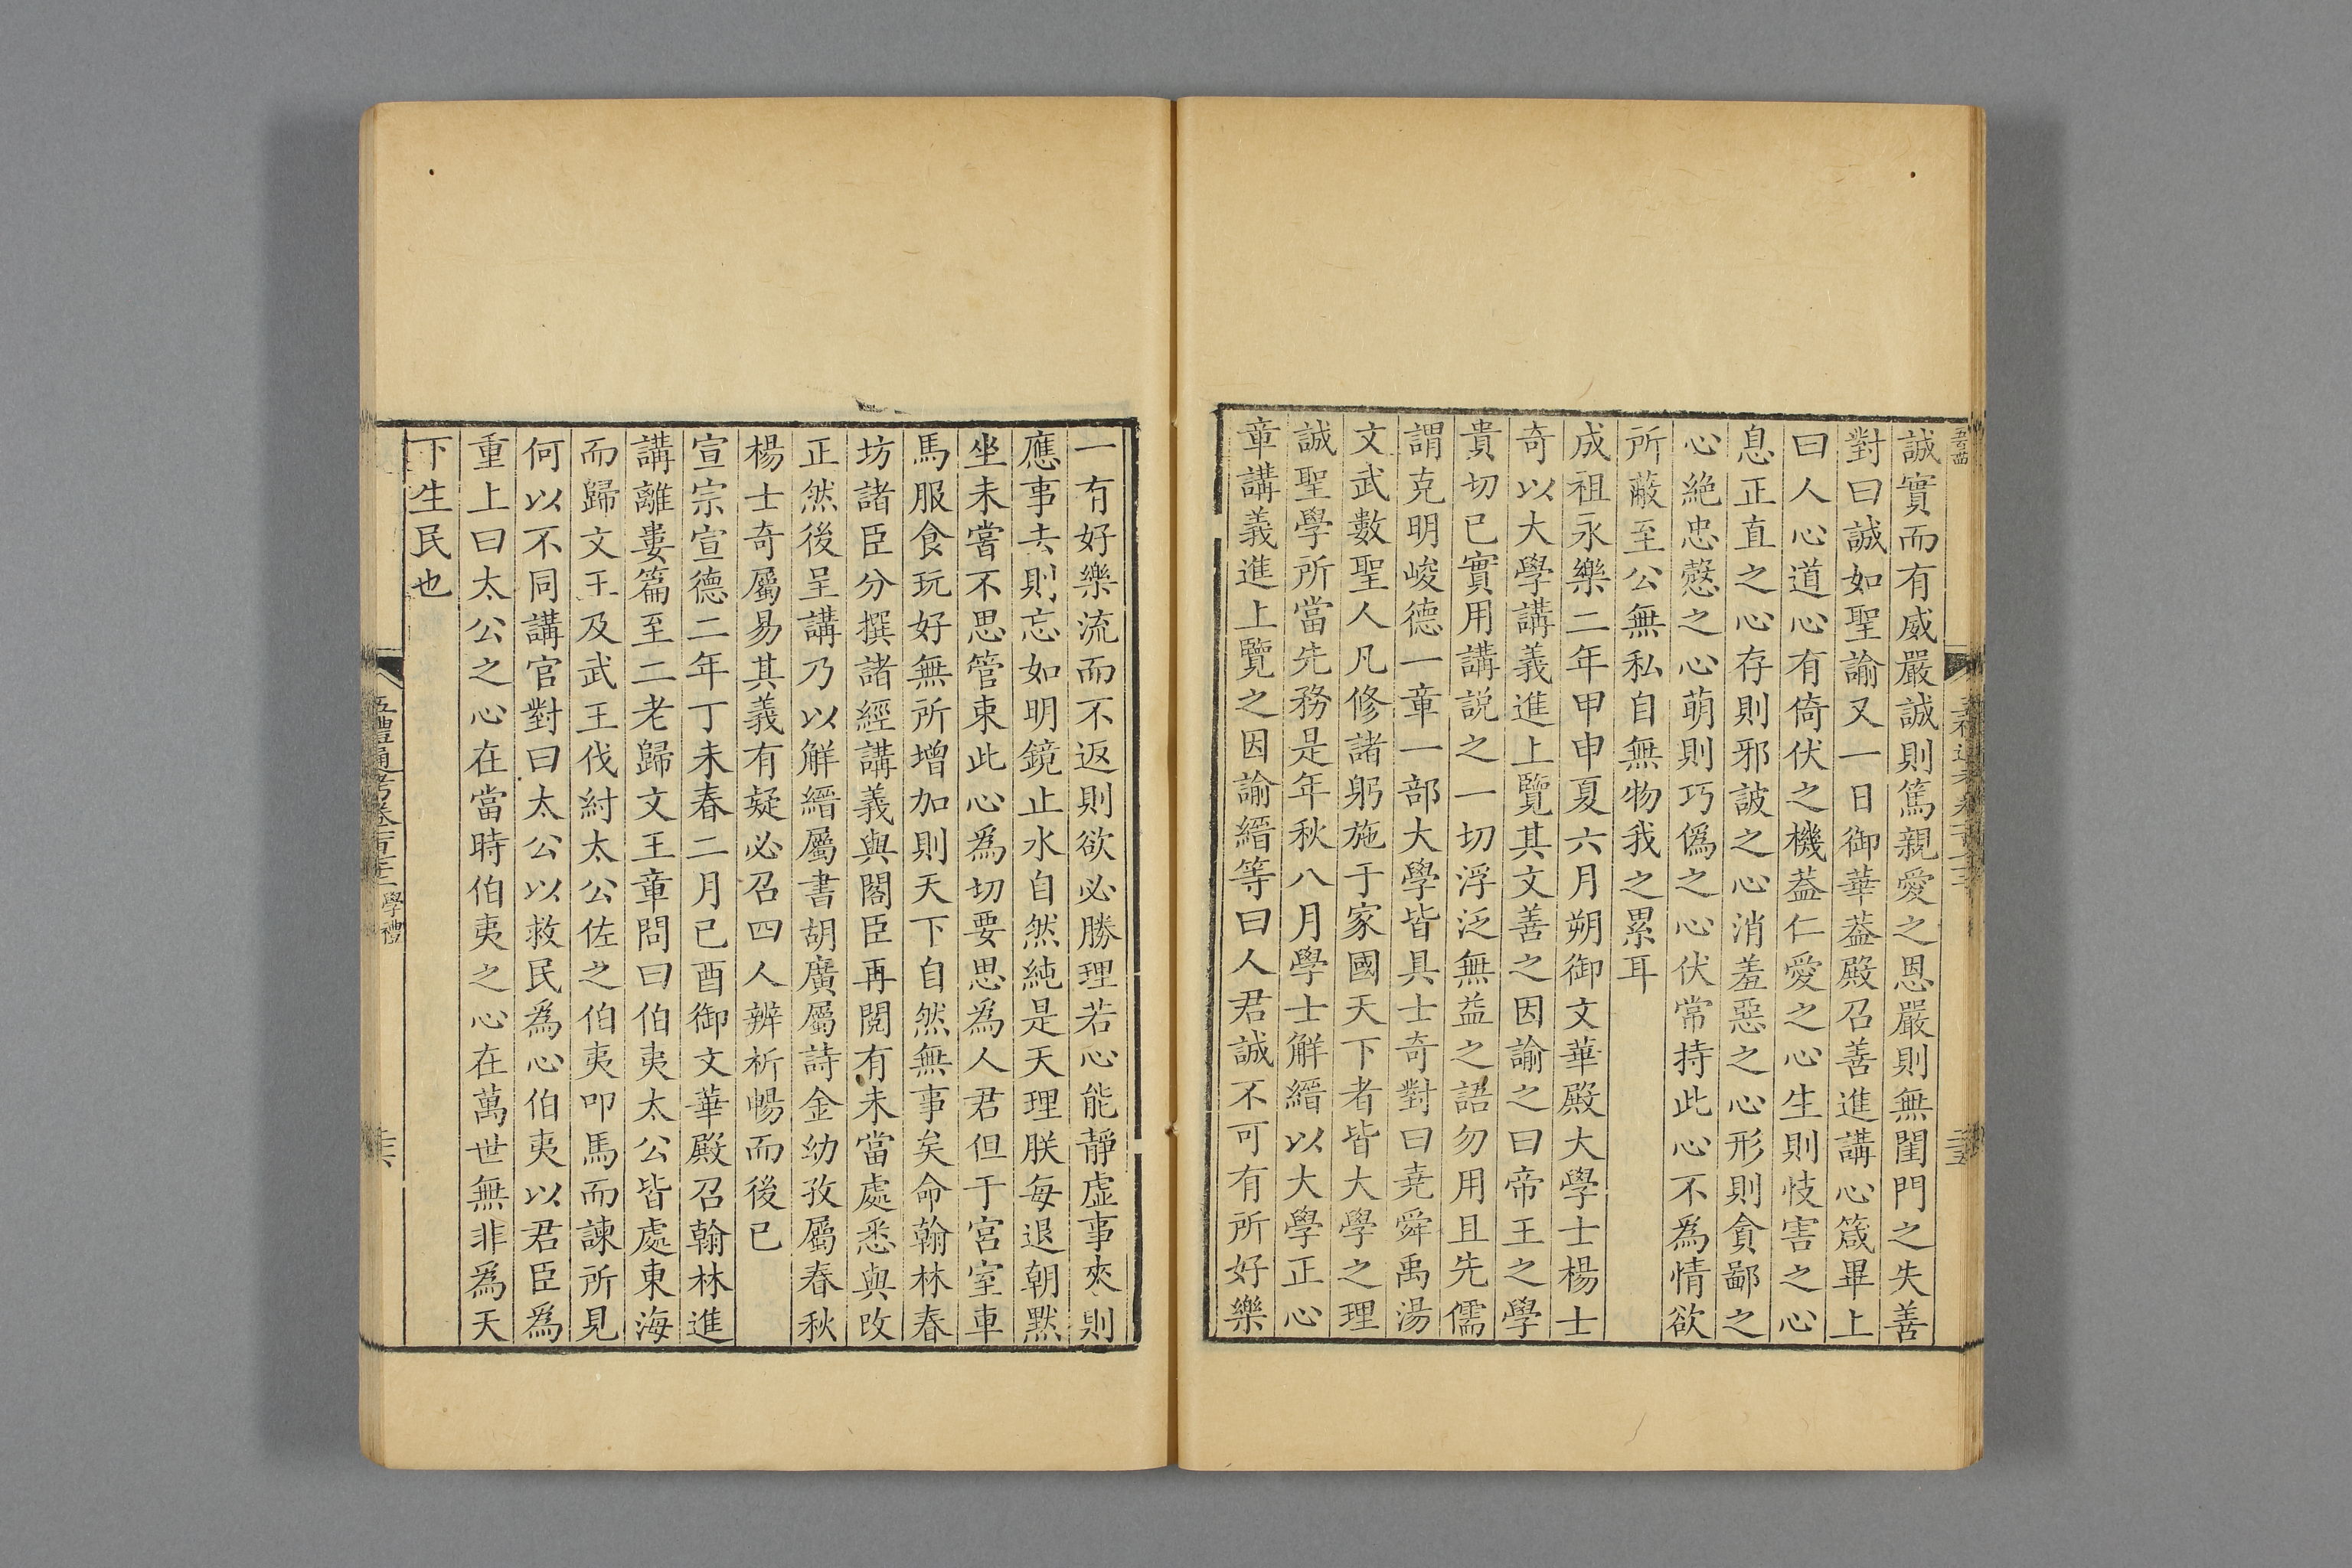 誠實而有威嚴誠則篤親愛之恩嚴則無閨門之失善
對曰誠如聖諭又一日御華葢殿召善進講心箴畢上
曰人心道心有倚伏之機葢仁愛之心生則忮害之心
息正直之心存則邪詖之心消羞惡之心形則貪鄙之
心絶忠慤之心萌則巧僞之心伏常持此心不為情欲
所蔽至公無私自無物我之累耳
成祖永樂二年甲申夏六月朔御文華殿大學士楊士
奇以大學講義進上覽其文善之因諭之曰帝王之學
貴切已實用講説之一切浮泛無益之語勿用且先儒
謂克明峻德一章一部大學皆具士奇對曰堯舜禹湯
文武數聖人凡修諸躬施于家國天下者皆大學之理
誠聖學所當先務是年秋八月學士解縉以大學正心
章講義進上覽之因諭縉等曰人君誠不可有所好樂
一有好樂流而不返則欲必勝理若心能靜虛事來則
應事去則忘如明鏡止水自然純是天理朕每退朝默
坐未嘗不思管束此心為切要思為人君但于宮室車
馬服食玩好無所增加則天下自然無事矣命翰林春
坊諸臣分撰諸經講義與閣臣再閱有未當處悉與改
正然後呈講乃以解縉屬書胡廣屬詩金幼孜屬春秋
楊士奇屬易其義有疑必召四人辨析暢而後已
宣宗宣德二年丁未春二月已酉御文華殿召翰林進
講離婁篇至二老歸文王章問曰伯夷太公皆處東海
而歸文王及武王伐紂太公佐之伯夷叩馬而諫所見
何以不同講官對曰太公以救民為心伯夷以君臣為
重上曰太公之心在當時伯夷之心在萬世無非為天
下生民也
五禮通考卷一百七十二 學禮